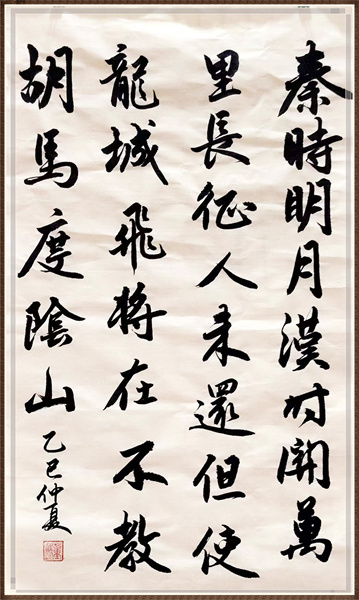 秦時明月漢时關萬
里長征人未還但使
龍城飛將在不教
胡馬度陰山
乙巳仲夏